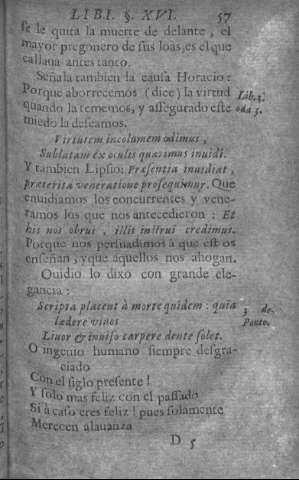 LIB I. §. XVI. 57
se le quita la muerte de delante, el
mayor pregonero de sus loas, es el que
callaua antes tanto.
Señala tambien la causa Horacio:
Porque aborrecemos (dice) la virtud
Lib. 3.
quando la tenemos, y assegurado este
oda 3.
miedo la deseamos.
Virtutem incolumem odimus,
Sublatam éx oculis quærimus inuidi.
Y tambien Lipsio: Præsentia inuidiat,
præterita veneratione prosequmur. Que
enuidiamos los concurrentes y vene-
ramos los que nos antecedieron: Et
his nos obrui, illis instrui credimus.
Porque nos persuadimos à que estos
enseñan, y que aquellos nos ahogan.
Quidio lo dixo con grande ele-
gancia:
Scripta placent à morte quidem: quia
3. de
lædere viuos
Ponto.
Liuor & iniuso carpere dente solet.
O ingenio humano siempre desgra-
ciado
Con el siglo presente!
Y solo mas feliz con el passado
Si à caso eres feliz! pues solamente
Merecen alauanza
D 5